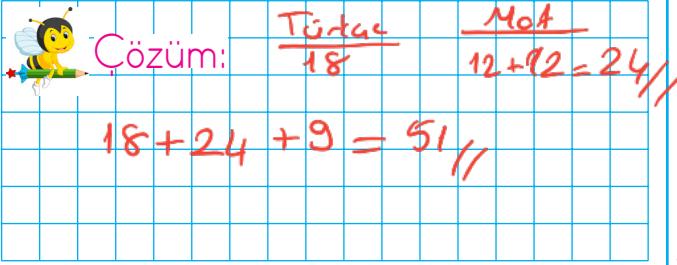 Çözüm:
Türkçe Mat
18 12+12=24//
18+24+9=51//